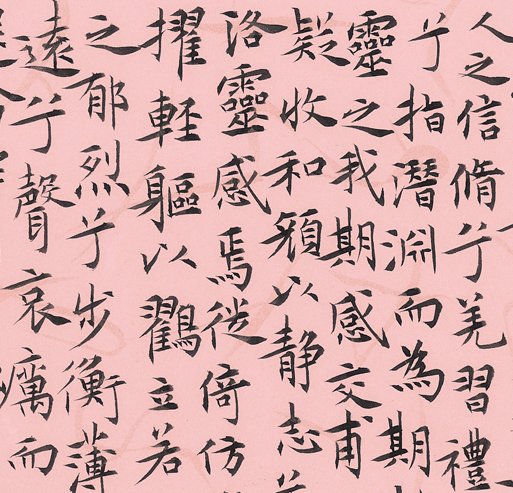 人之信脩兮羌習禮
兮指潛淵而為期
靈之我期感交甫
疑收和顏以靜志
洛靈感焉徙倚仿
擢軽軀以鶴立若
之郁烈兮步衡薄
遠兮聲哀厲而